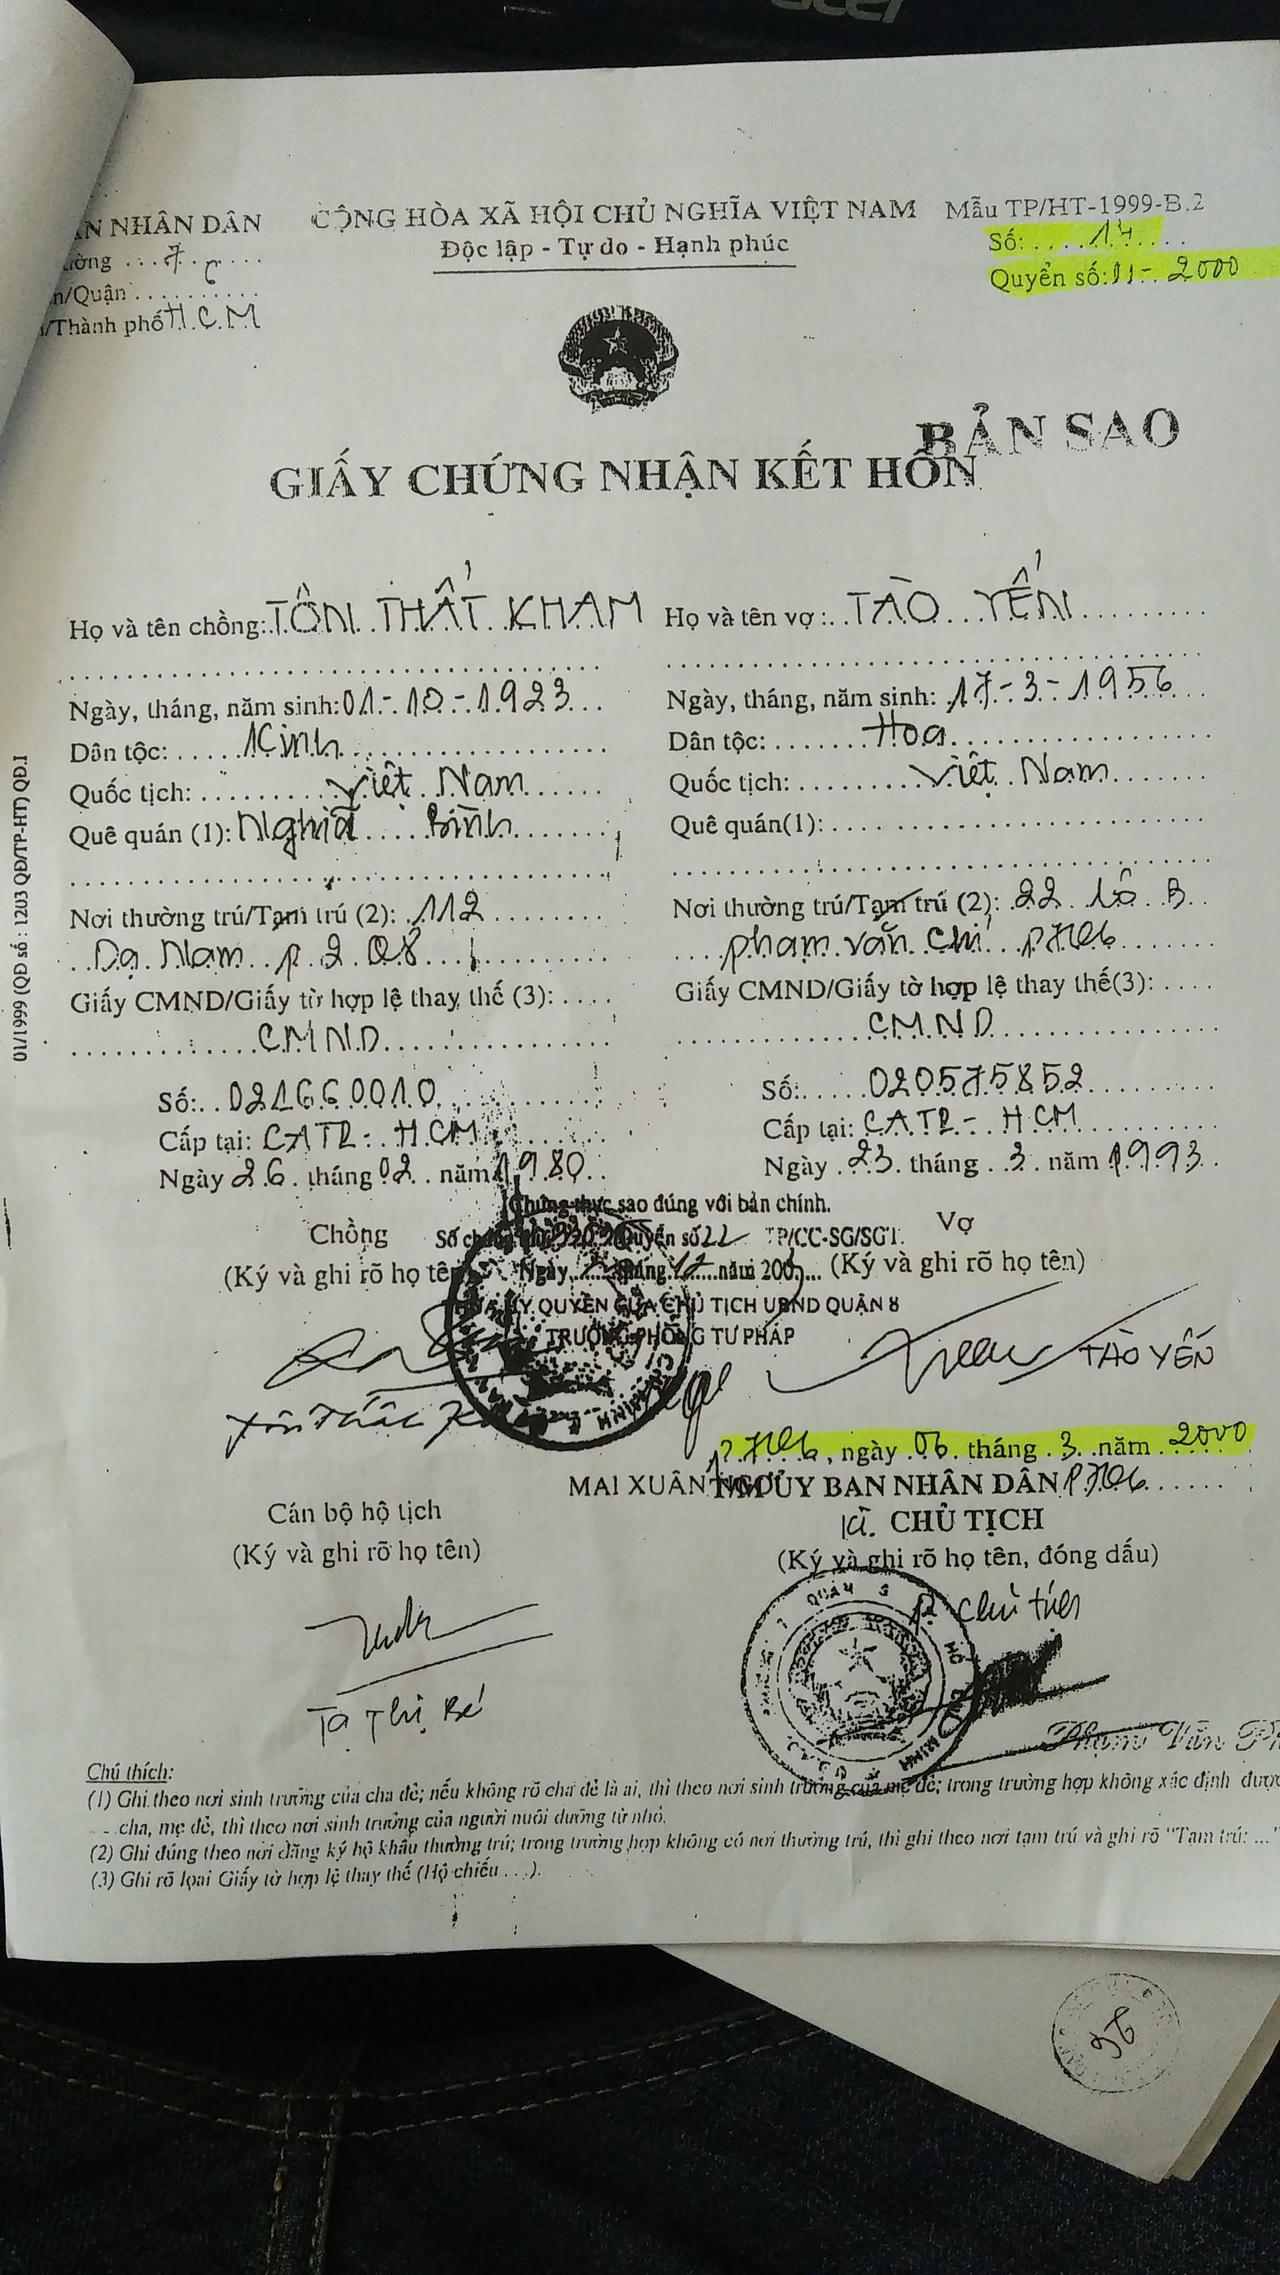 acer
ÂN NHÂN DÂN CỘNG HÒA XÃ HỘI CHỦ NGHĨA VIỆT NAM Mẫu TP/HT-1999-B.2
ường 7 Độc lập - Tự do - Hạnh phúc Số: 14
n/Quận 6 Quyển số: 01 - 2000
/Thành phố H.C.M
BẢN SAO
GIẤY CHỨNG NHẬN KẾT HÔN
Họ và tên chồng: TÔN THẤT KHAM Họ và tên vợ: TÀO YẾN
Ngày, tháng, năm sinh: 01-10-1923 Ngày, tháng, năm sinh: 17-3-1956
Dân tộc: Kinh Dân tộc: Hoa
Quốc tịch: Việt Nam Quốc tịch: Việt Nam
Quê quán (1): Nghĩa Bình Quê quán(1):
Nơi thường trú/Tạm trú (2): 112 Nơi thường trú/Tạm trú (2): 22 Lô B
Dạ Nam p.2 Q8 phạm văn Chí p7Q6
Giấy CMND/Giấy tờ hợp lệ thay thế (3): Giấy CMND/Giấy tờ hợp lệ thay thế(3):
CMND CMND
Số: 021660010 Số: 020575852
Cấp tại: CATP - HCM Cấp tại: CATP - HCM
Ngày 26 tháng 02 năm 1980 Ngày 23 tháng 3 năm 1993
Chứng thực sao đúng với bản chính.
Chồng Vợ
Số chứng thực Quyển số 22 TP/CC-SG/SGT
(Ký và ghi rõ họ tên) Ngày tháng 12 năm 200 (Ký và ghi rõ họ tên)
THỪA ỦY QUYỀN CỦA CHỦ TỊCH UBND QUẬN 8
TRƯỞNG PHÒNG TƯ PHÁP
TÀO YẾN
Tôn Thất
P.7Q6, ngày 06 tháng 3 năm 2000
MAI XUÂN TM ỦY BAN NHÂN DÂN P7Q6
Cán bộ hộ tịch KT. CHỦ TỊCH
(Ký và ghi rõ họ tên) (Ký và ghi rõ họ tên, đóng dấu)
P. Chủ tịch
Tạ Thị Bé
Phạm Văn Ph
Chú thích:
(1) Ghi theo nơi sinh trưởng của cha đẻ; nếu không rõ cha đẻ là ai, thì theo nơi sinh trưởng của mẹ đẻ; trong trường hợp không xác định được
cha, mẹ đẻ, thì theo nơi sinh trưởng của người nuôi dưỡng từ nhỏ.
(2) Ghi đúng theo nơi đăng ký hộ khẩu thường trú; trong trường hợp không có nơi thường trú, thì ghi theo nơi tạm trú và ghi rõ "Tạm trú: ..."
(3) Ghi rõ loại Giấy tờ hợp lệ thay thế (Hộ chiếu . . .).
01/1999 (QĐ số : 1203 QĐ/TP-HT) QĐ.1
26